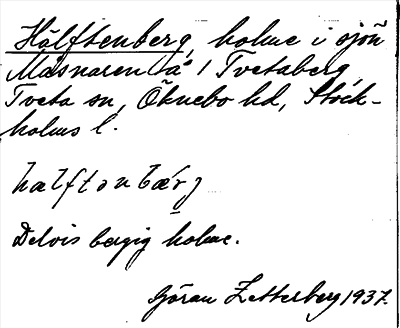 Hälftenberg, holme i sjön
Måsnaren å 1 Tvetaberg,
Tveta sn, Öknebo hd, Stock-
holms l.
hælftənbærj
Delvis bergig holme.
Göran Zetterberg 1937.